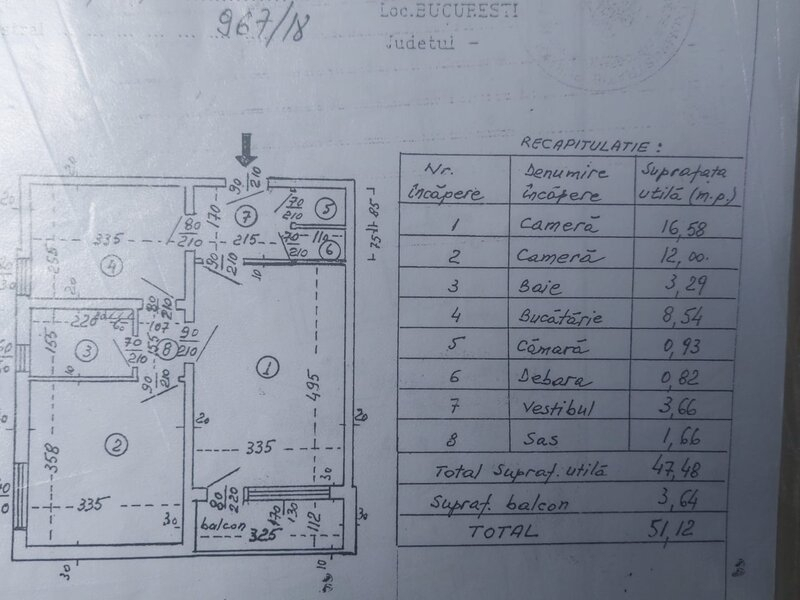 967/18
Loc.BUCURESTI
Judetul -
RECAPITULATIE :
Nr. încăpere
Denumire încăpere
Suprafata utilă (m.p.)
1 Cameră 16,58
2 Cameră 12,00
3 Baie 3,29
4 Bucătărie 8,54
5 Cămară 0,93
6 Debara 0,82
7 Vestibul 3,66
8 Sas 1,66
Total Supraf. utilă 47,48
Supraf. balcon 3,64
TOTAL 51,12
20
90
210
170
7
70
210
5
85
75
80
210
335
215
70
110
210
6
255
4
90
210
10
20
80
210
220
60
107
90
210
155
3
70
210
155
8
90
210
1
495
10
20
20
2
358
335
335
30
80
220
30
balcon
170
130
112
30
325
30
10